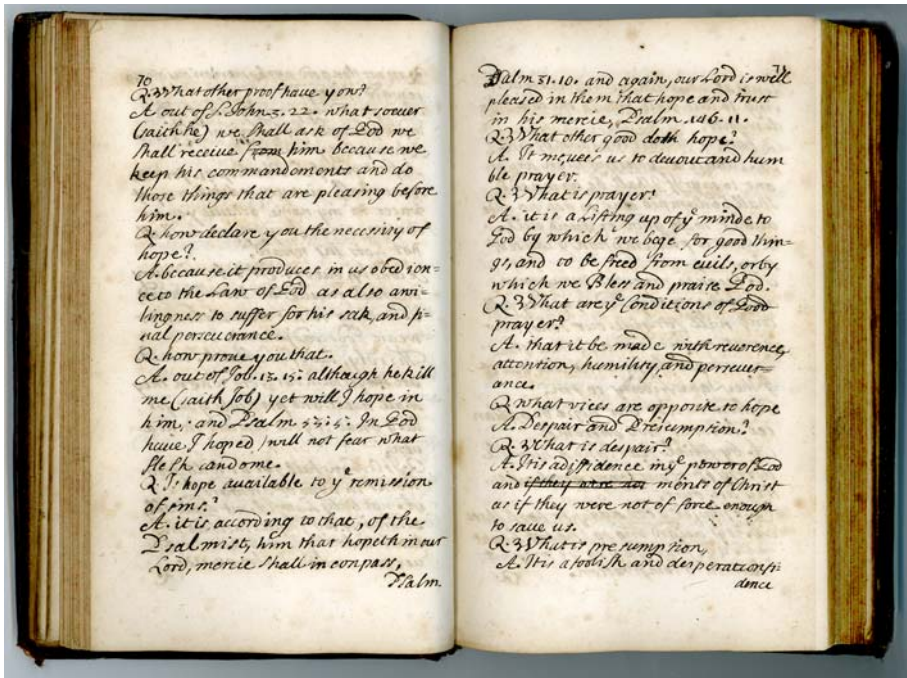 70
Q. What other proof have you?
A. out of S. John 3. 22. what soever
(saith he) we shall ask of God we
shall receive from him because we
keep his commandoments and do
those things that are pleasing before
him.
Q. how declare you the necessity of
hope?
A. because it produces in us obedien=
ce to the Law of God as also a wi=
lingness to suffer for his sak, and fi=
nal perseverance.
Q. how prove you that.
A. out of Job. 13. 15. although he kill
me (saith Job) yet will I hope in
him, and Psalm 55. 5. In God
have I hoped I will not fear what
flesh can do me.
Q. Is hope available to yᵉ remission
of sins?
A. it is according to that, of the
Psalmist, him that hopeth in our
Lord, mercie shall in conpass,
Psalm
71
Psalm 31. 10. and again, our Lord is well
pleased in them that hope and trust
in his mercie, Psalm. 146. 11.
Q. What other good doth hope?
A. It moves us to devout and hum
ble prayer.
Q. What is prayer?
A. it is a Lifting up of yᵉ minde to
God by which we bege for good thin=
gs, and to be freed from evils, or by
which we Bless and praise God.
Q. What are yᵉ Conditions of Good
prayer?
A. that it be made with reverence,
attention, humility, and persever=
ance.
Q what vices are opposite to hope
A. Despair and Presumption?
Q. What is despair?
A. It is a diffidence in yᵉ power of God
and if they were not merits of Christ
as if they were not of force enough
to save us.
Q. What is presumption,
A. It is a foolish and desperat confi=
dence